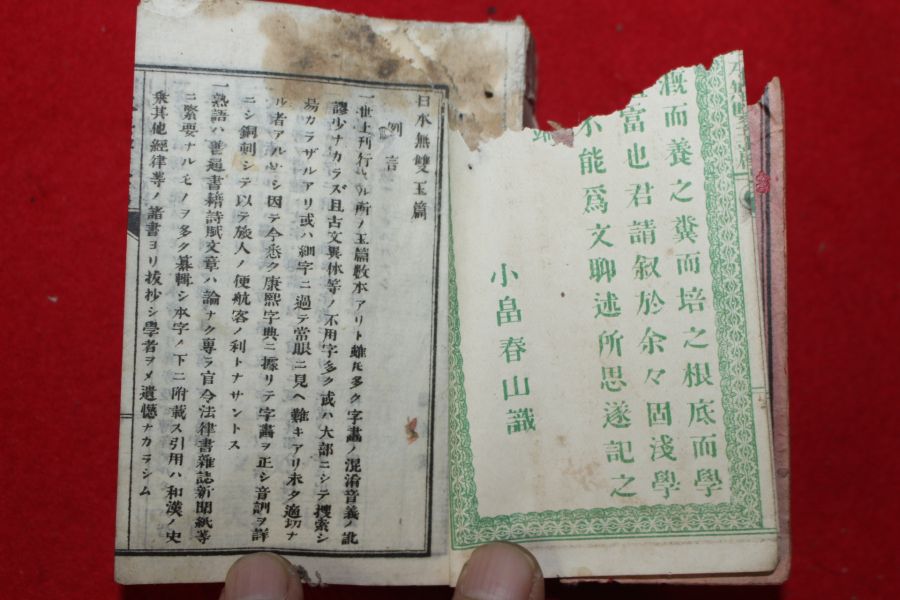 溉而養之糞而培之根底而學
富也君請叙於余々固淺學
不能爲文聊述所思遂記之
小畠春山識
日本無雙玉篇
例言
一世上刊行スル所ノ玉篇數本アリト雖モ多ク字畫ノ混淆音義ノ訛
謬少ナカラズ且古文異体等ノ不用字多ク或ハ大部ニシテ搜索シ
易カラザルアリ或ハ細字ニ過テ常眼ニ見ヘ難キアリ未タ適切ナ
ル者アルナシ因テ今悉ク康熙字典ニ據リテ字畫ヲ正シ音訓ヲ詳
ニシ銅刻シテ以テ旅人ノ便航客ノ利トナサントス
一熟語ハ普通書籍詩賦文章ハ論ナク專ラ官令法律書雜誌新聞紙等
ニ緊要ナルモノヲ多ク纂輯シ本字ノ下ニ附載ス引用ハ和漢ノ史
乘其他經律等ノ諸書ヨリ拔抄シ學者ヲメ遺憾ナカラシム